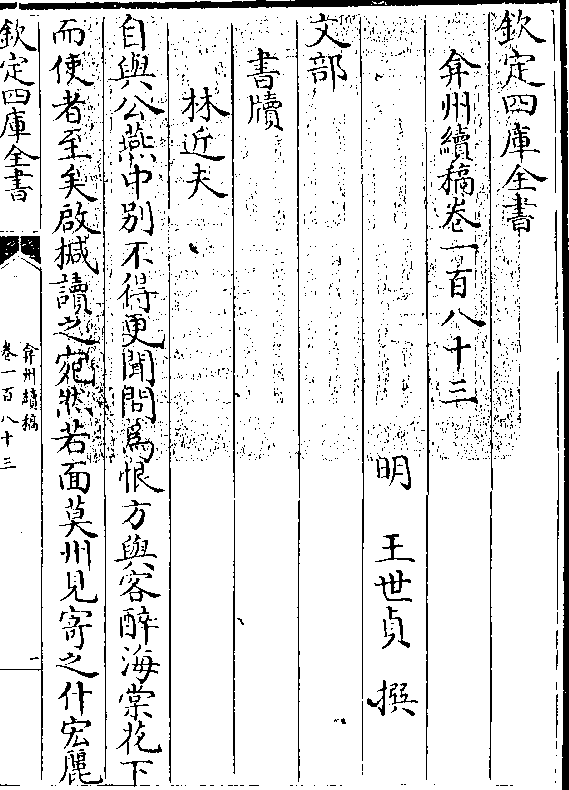 欽定四庫全書
弇州續稿卷一百八十三
明 王世貞 撰
文部
書牘
林近夫
自與公燕中别不得更聞問為恨方與客醉海棠花下
而使者至矣啟椷讀之宛然若面莫州見寄之什宏麗
欽定四庫全書
弇州續稿
卷一百八十三
一